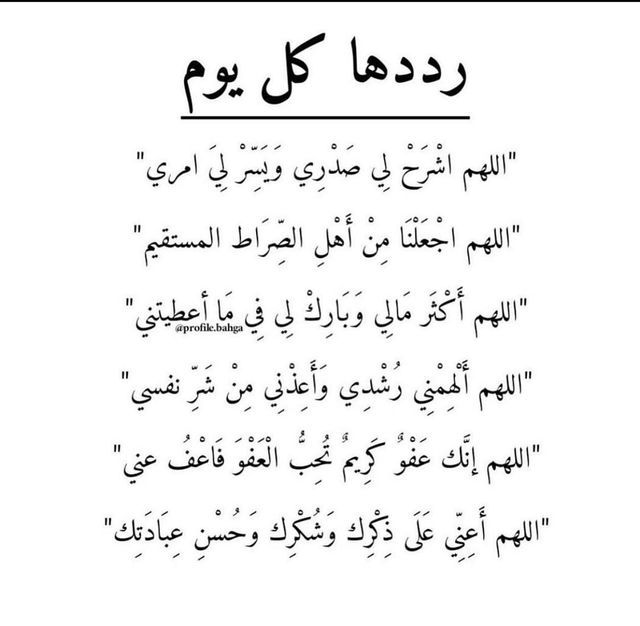 رددها كل يوم
"اللهم اشْرَحْ لِي صَدْرِي وَيَسِّرْ لِيَ امري"
"اللهم اجْعَلْنَا مِنْ أَهْلِ الصِّرَاط المستقيم"
"اللهم أَكْثَر مَالِي وَبَارِكْ لِي فِي مَا أعطيتني"
@profile.bahga
"اللهم أَلْهِمْنِي رُشْدِي وَأَعِذْنِي مِنْ شَرِّ نفسي"
"اللهم إنَّك عَفْوٌ كَرِيمٌ تُحِبُّ الْعَفْوَ فَاعْفُ عني"
"اللهم أَعِنِّي عَلَى ذِكْرِك وَشُكْرِك وَحُسْنِ عِبَادَتِك"